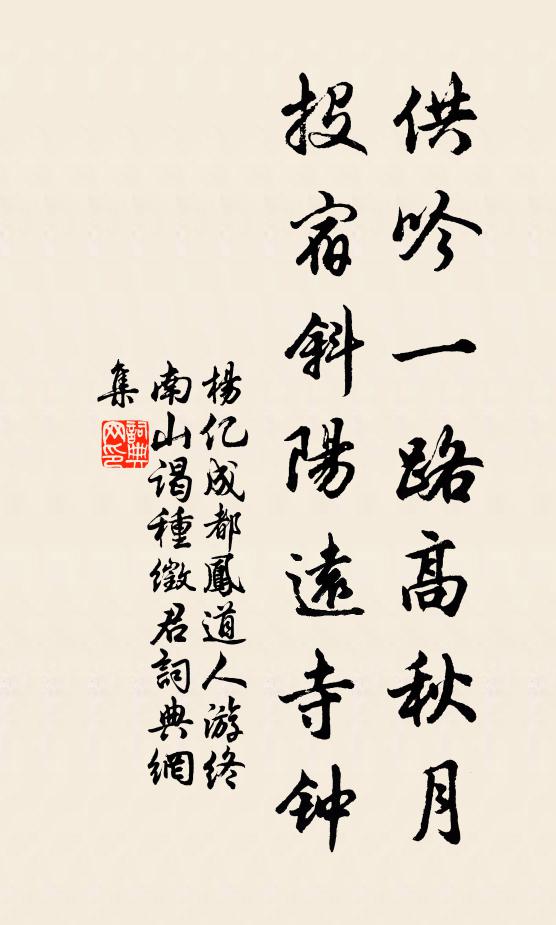 供吟一路高秋月
投宿斜陽遠寺钟
楊亿成都鳳道人游终
南山谒種徵君詞典網
集
詞典
网印